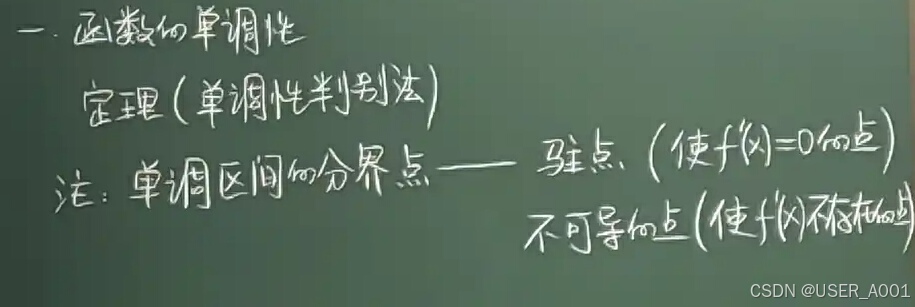 一. 函数的单调性
定理(单调性判别法)
注: 单调区间的分界点—— 驻点 (使f'(x)=0的点)
不可导的点(使f'(x)不存在的点)
CSDN @USER_A001